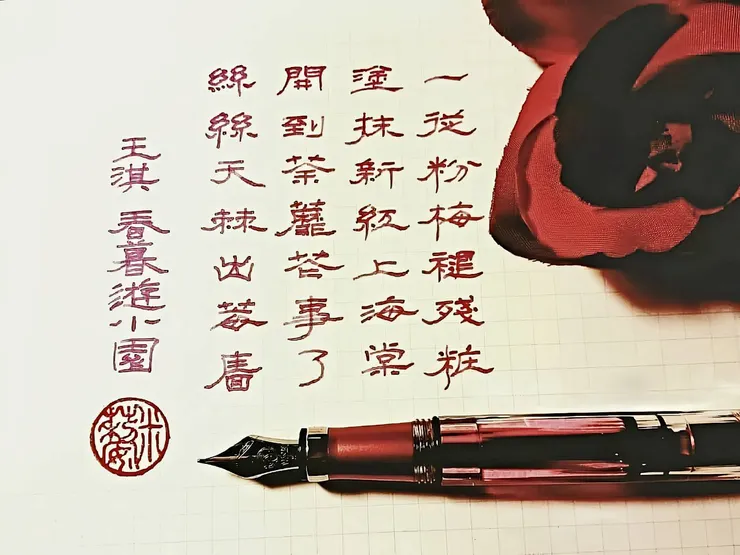 一從粉梅褪殘粧
塗抹新紅上海棠
開到荼蘼花事了
絲絲天棘出莓廧
王淇 春暮遊小園